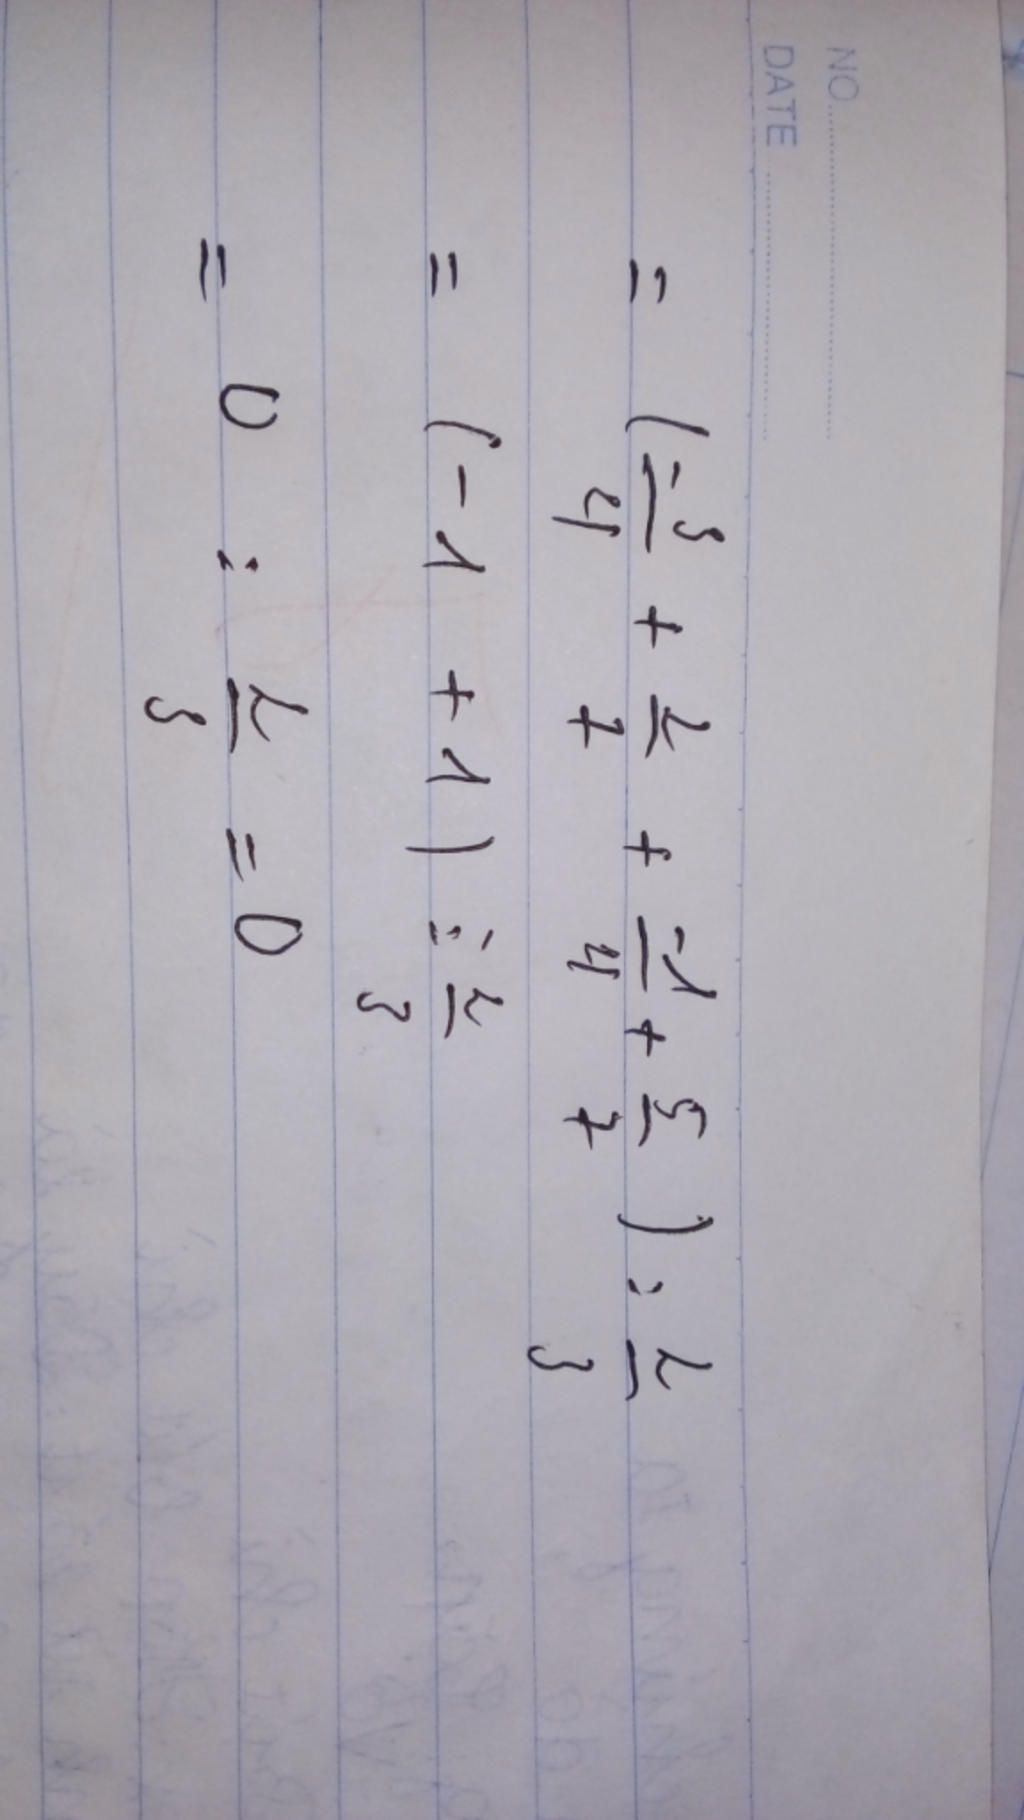 NO.
DATE
= (-3/4 + 2/7 + -1/4 + 5/7) : 2/3
= (-1 + 1) : 2/3
= 0 : 2/3 = 0